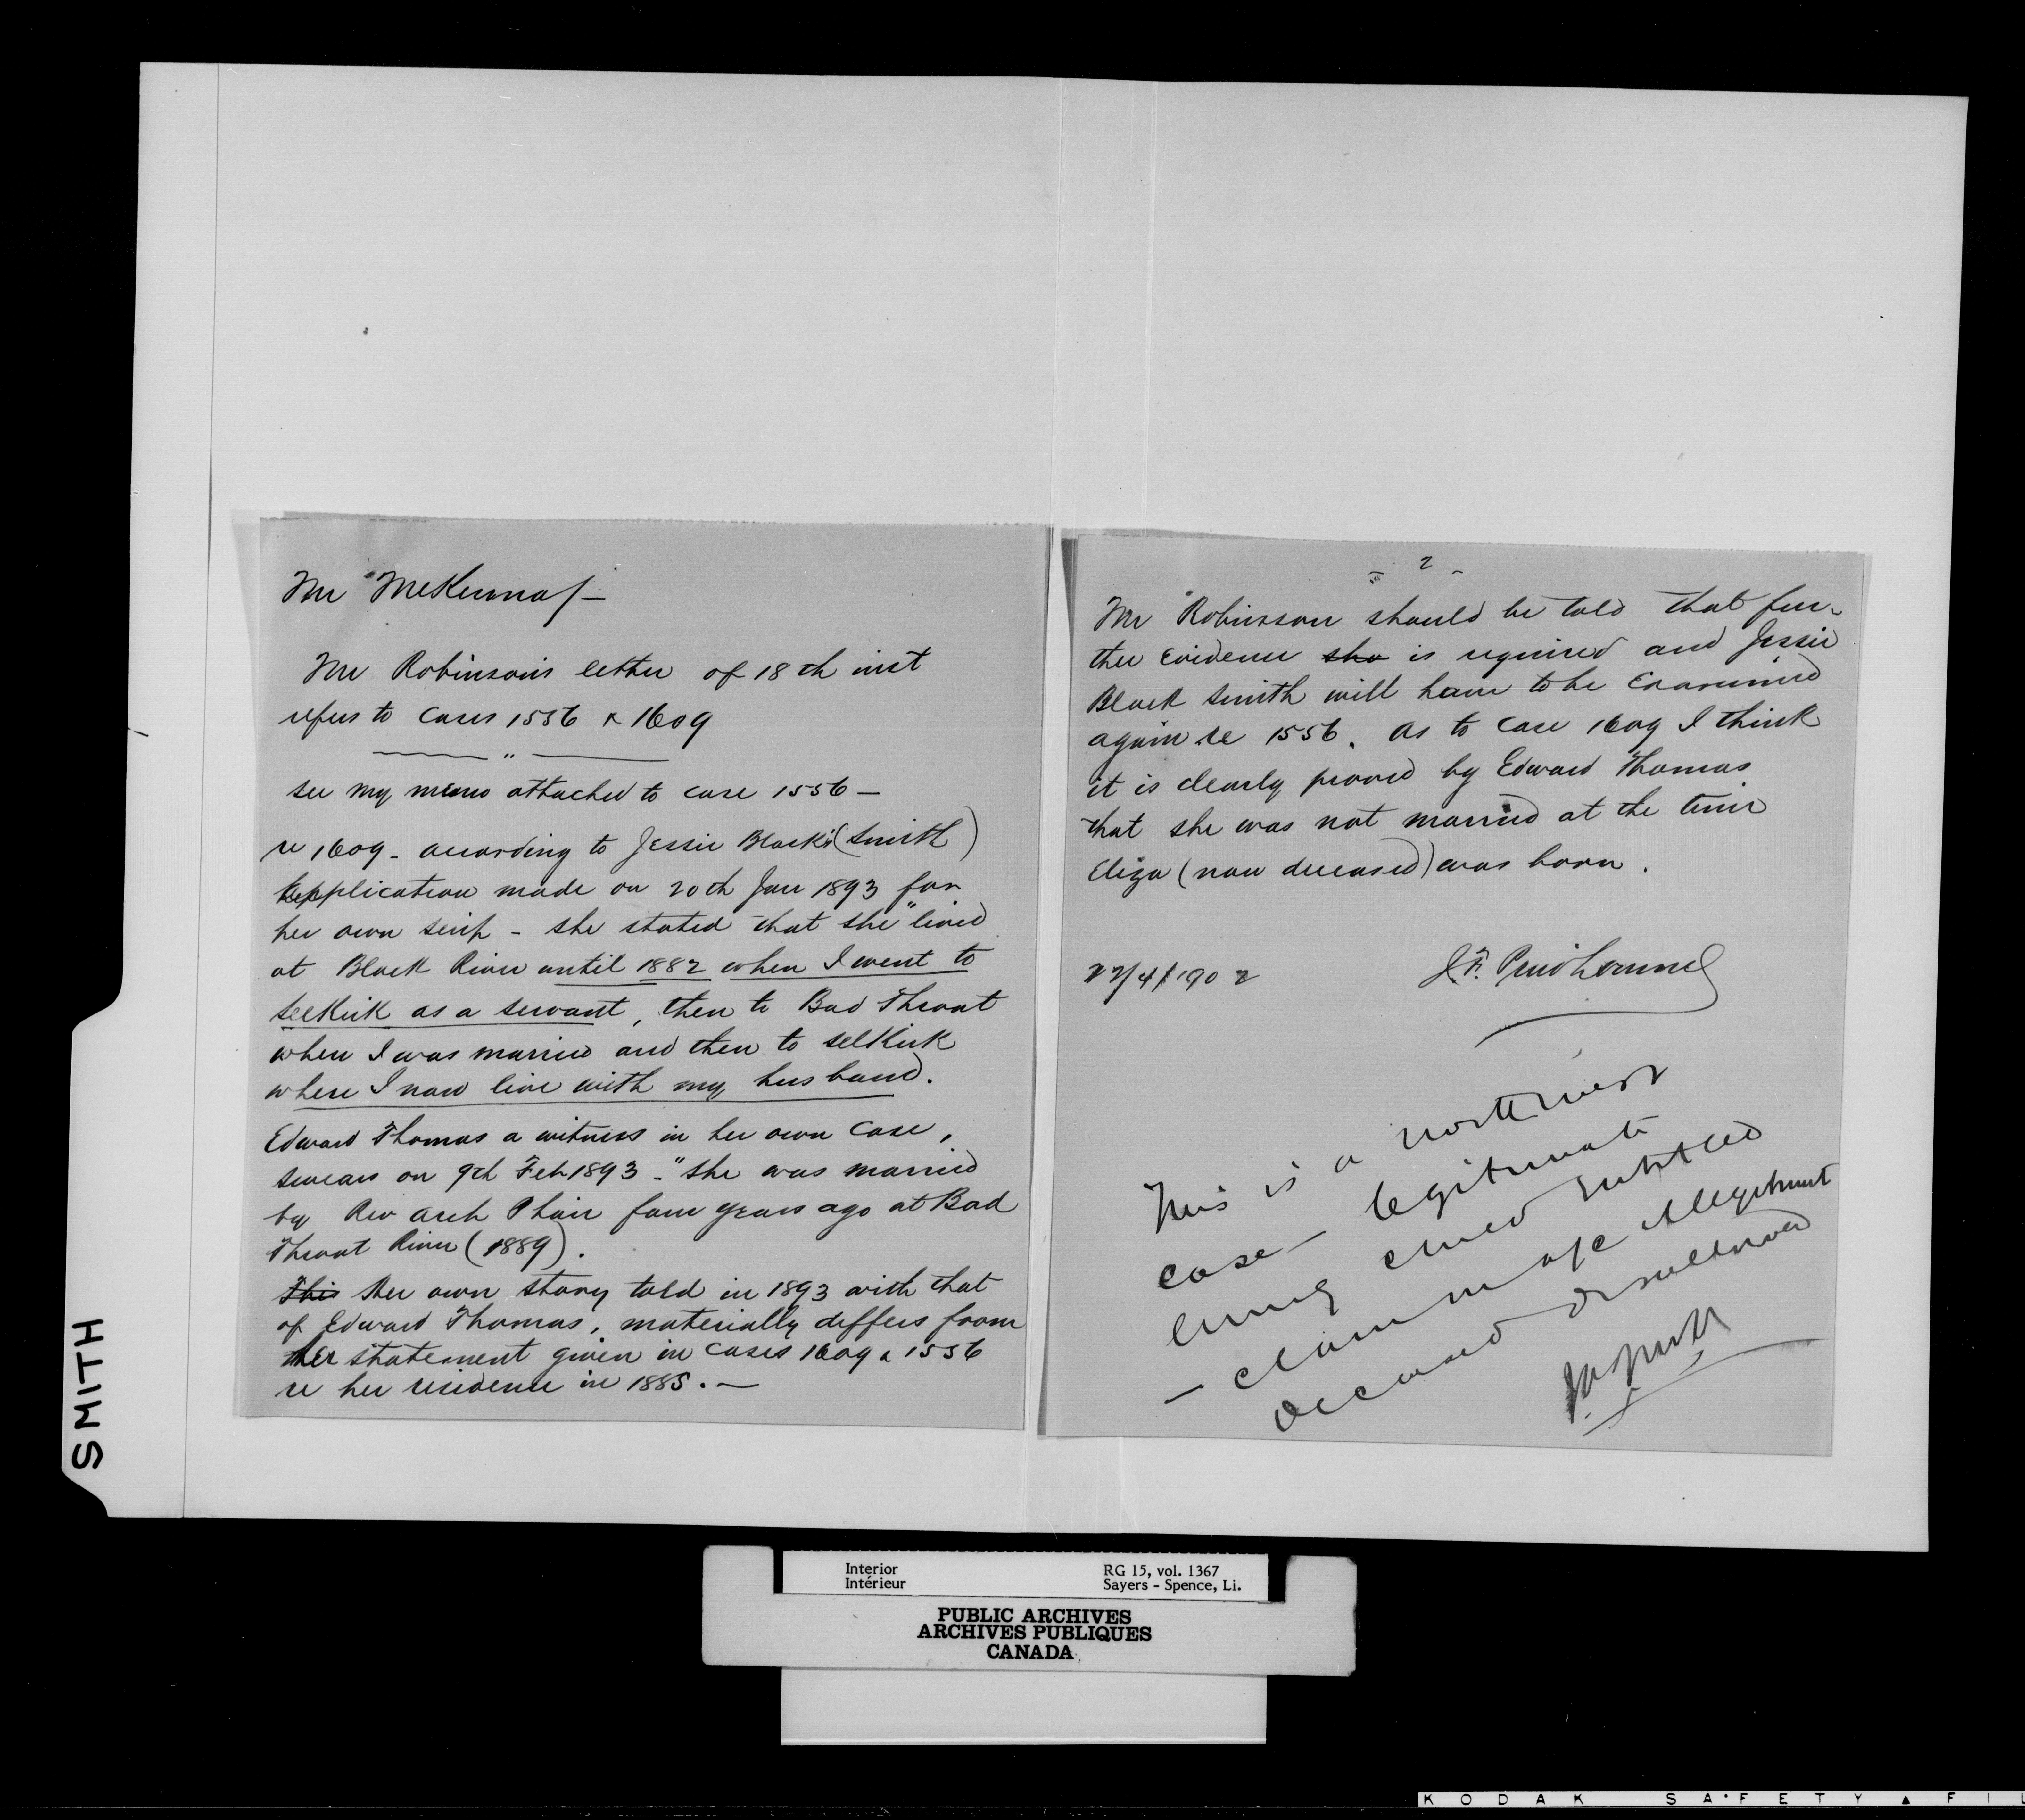 Mr McKenna/-
Mr Robinson's letter of 18th inst
refers to Cases 1556 & 1609
"
see my memo attached to case 1556 —
re 1609 - according to Jessie Black's (Smith)
Application made on 20th Jan 1893 for
her own scrip - she stated that she "lived
at Black River until 1882 when I went to
Selkirk as a servant, then to Bad Throat
when I was married and then to Selkirk
where I now live with my husband.
Edward Thomas a witness in her own case,
swears on 9th Feb 1893 - "she was married
by Rev Arch Phair four years ago at Bad
Throat River (1889).
This Her own story told in 1893 with that
of Edward Thomas, materially differs from
her statement given in Cases 1609 & 1556
re her residence in 1885. —
- 2 -
Mr Robinson should be told that fur-
ther Evidence sho is required and Jessie
Black Smith will have to be Examined
again re 1556. As to Case 1609 I think
it is clearly proved by Edward Thomas
that she was not married at the time
Eliza (now deceased) was born.
22/4/1902 J. F. Prudhomme
This is a northwest
case — legitimate
living child entitled
— claim of illegitimate
deceased disallowed
SMITH
Interior RG 15, vol. 1367
Intérieur Sayers - Spence, Li.
PUBLIC ARCHIVES
ARCHIVES PUBLIQUES
CANADA
KODAK SAFETY FIL